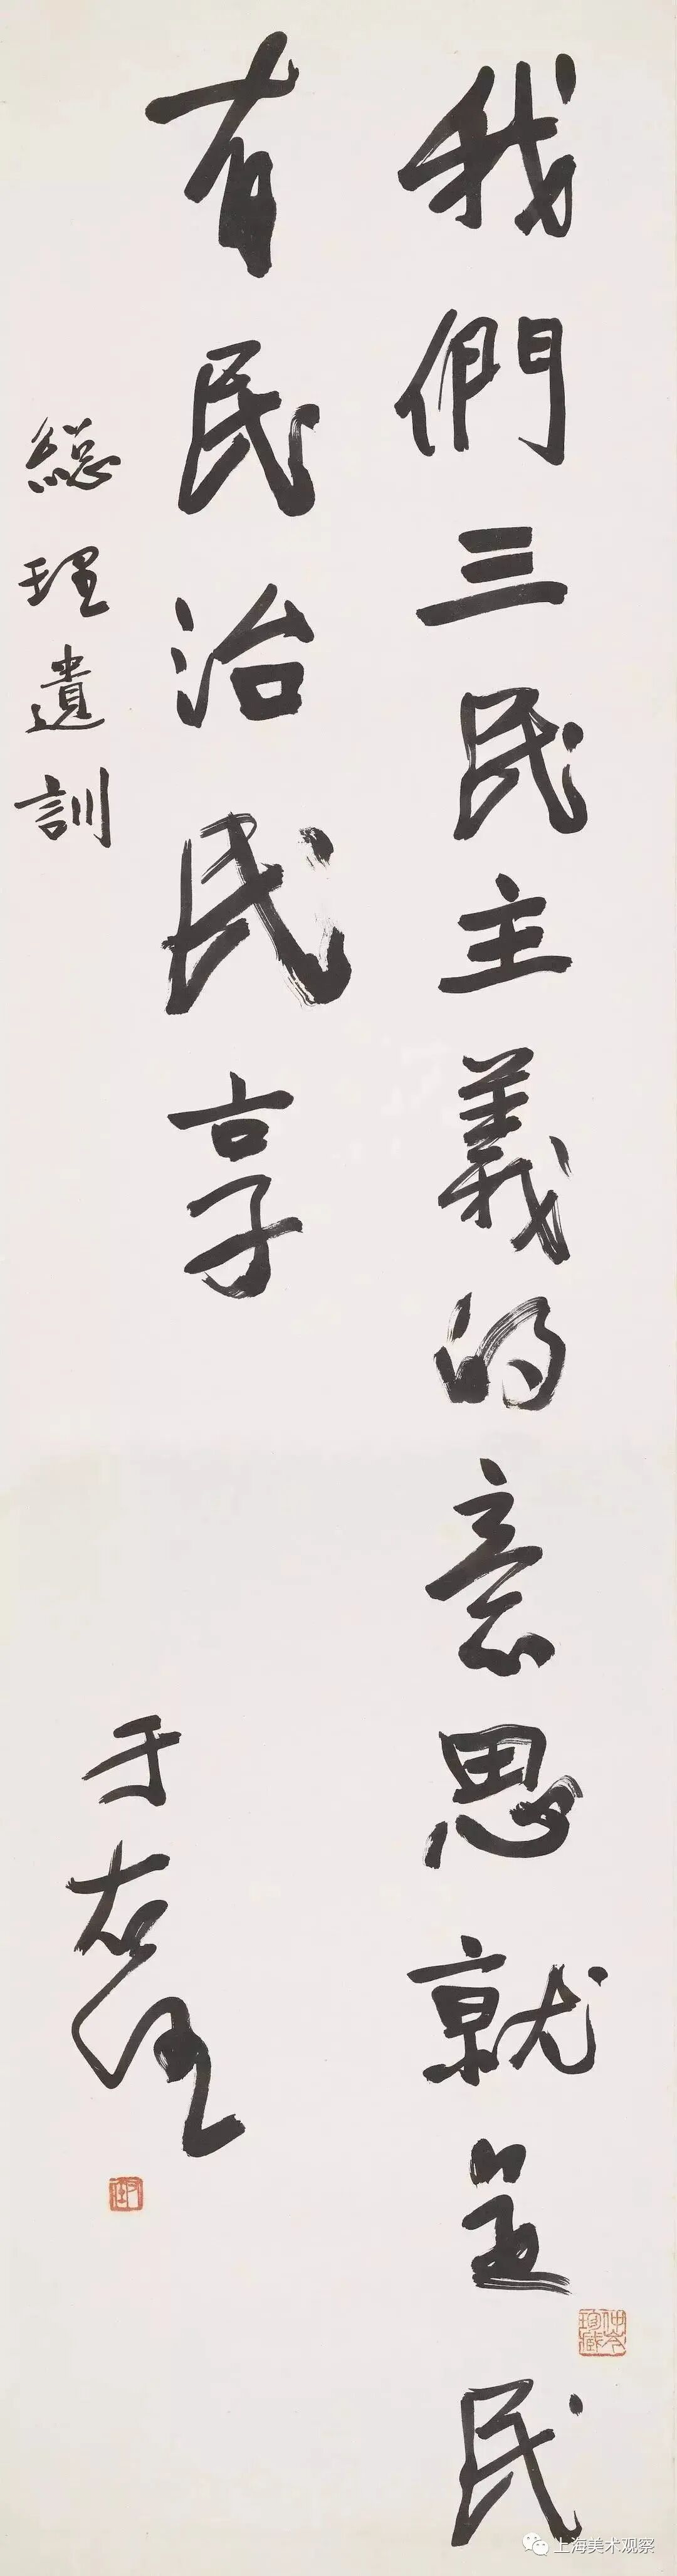 我們三民主義的意思就是民
有民治民享
總理遺訓
于右任
仲岑珍藏
上海美术观察